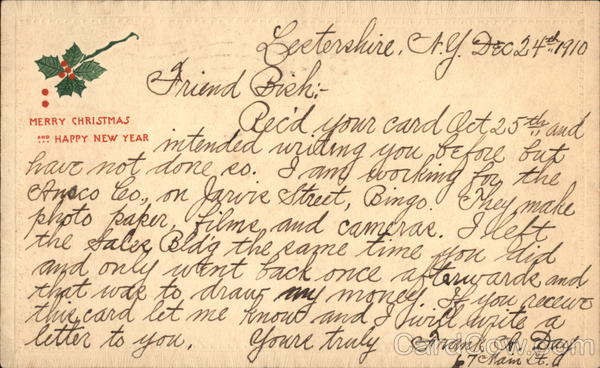 Lestershire, N.Y. Dec 24th 1910
Friend Bish:-
MERRY CHRISTMAS
AND HAPPY NEW YEAR
Rec'd your card Oct 25th and
intended writing you before but
have not done so. I am working for the
Ansco Co., on Jarvis Street, Bingo. They make
photo paper, films and cameras. I left
the Sales Bldg the same time you did
and only went back once afterwards and
that was to draw my money. If you receive
this card let me know and I will write a
letter to you. Yours truly Frank A. Day
67 Main St.
CardCow.com